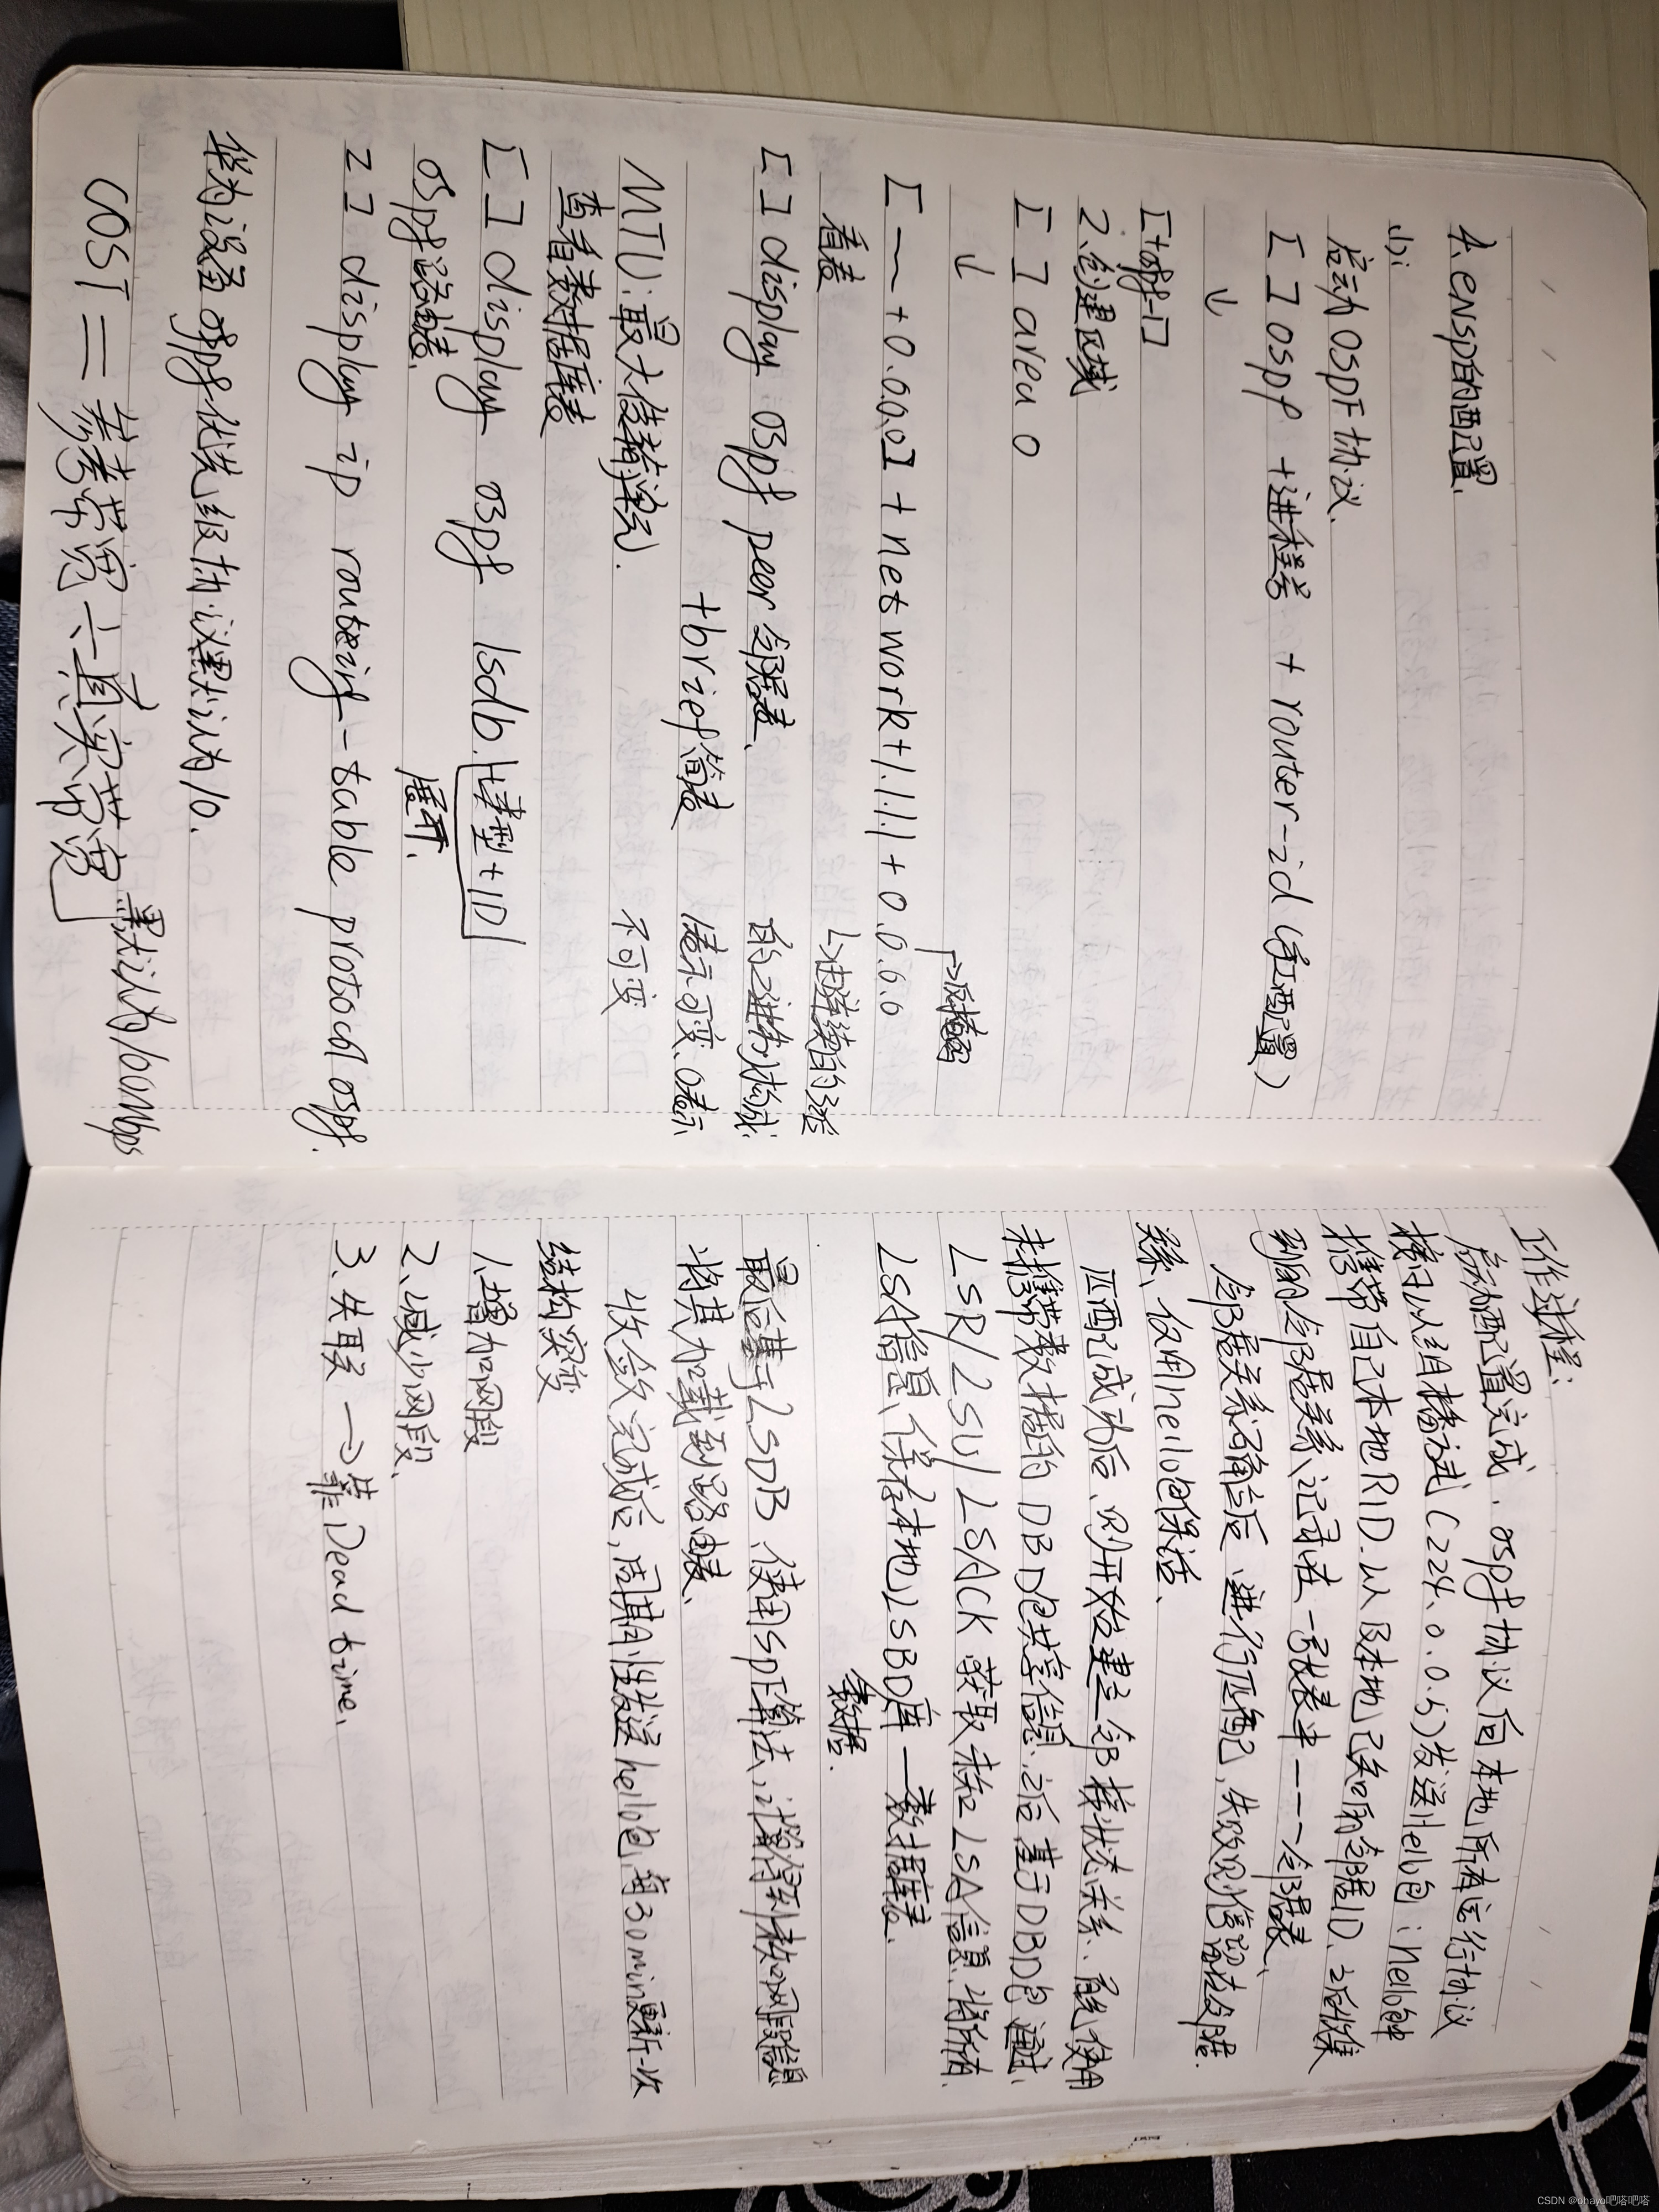 1. ensp的配置.
启动OSPF协议.
[ ] ospf +进程号 + router-id (手工配置)
↓
[+ospf-1]
2.创建区域
[ ] area 0
↓ →反掩码
[ — +0.0.0.0] + network + 1.1.1.1 + 0.0.0.0
看表
[ ] display ospf peer 邻居表、
+brief 简表
MTU:最大传输单元.
查看数据库表
[ ] display ospf lsdb. +类型+ID
展开.
ospf路由表.
[ ] display ip routing-table protocol ospf.
华为设备ospf优先级协议默认为10.
COST = 参考带宽 / 真实带宽 默认为100Mbps
↳由连续的
的2进制构成:
1表示可变、0表示
不可变
工作过程:
启动配置完成. ospf协议向本地所有运行协议
接口以组播方式(224.0.0.5)发送Hello包:hello包中
携带自己本地RID.以及本地已知的邻居ID、之后收集
到的邻居关系记录在一张表中 --- 邻居表、
邻居关系确信后 进行匹配,失败则停留在邻居
关系、仅用hello包保活、
匹配成功后、则开始建立邻接状态关系、首先使用
未携带数据的DBD包共享信息.之后基于DBD包
LSR/LSU/LSACK获取未知LSA信息、将所有
LSA信息保存本地LSBD库—数据库表.
数据.
最后基于LSDB 使用SPF算法,计算得到未知网段信息
将其加载到路由表、
收敛完成后,周期性发送hello包,每30min更新一次
结构突变
1.增加网段
2、减少网段、
3.失联 → 靠Dead time.
CSDN @ohayo吧嗒吧嗒